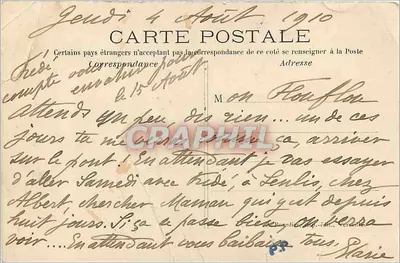 Jeudi 4 Août 1910
CARTE POSTALE
Certains pays étrangers n'acceptant pas la correspondance de ce coté se renseigner à la Poste
Correspondance
Adresse
Fredé
compte vous
envahir pour
le 15 Août
Mon Flouflou
attends un peu, dis rien... un de ces
jours tu me verras comme ça, arriver
sur le pont! En attendant je vas essayer
d'aller Samedi avec Frédé, à Senlis, chez
Albert, chercher Maman qui y est depuis
huit jours. Si ça se passe bien on verra
voir.... En attendant vous baibaise tous.
CPAPHIL.COM